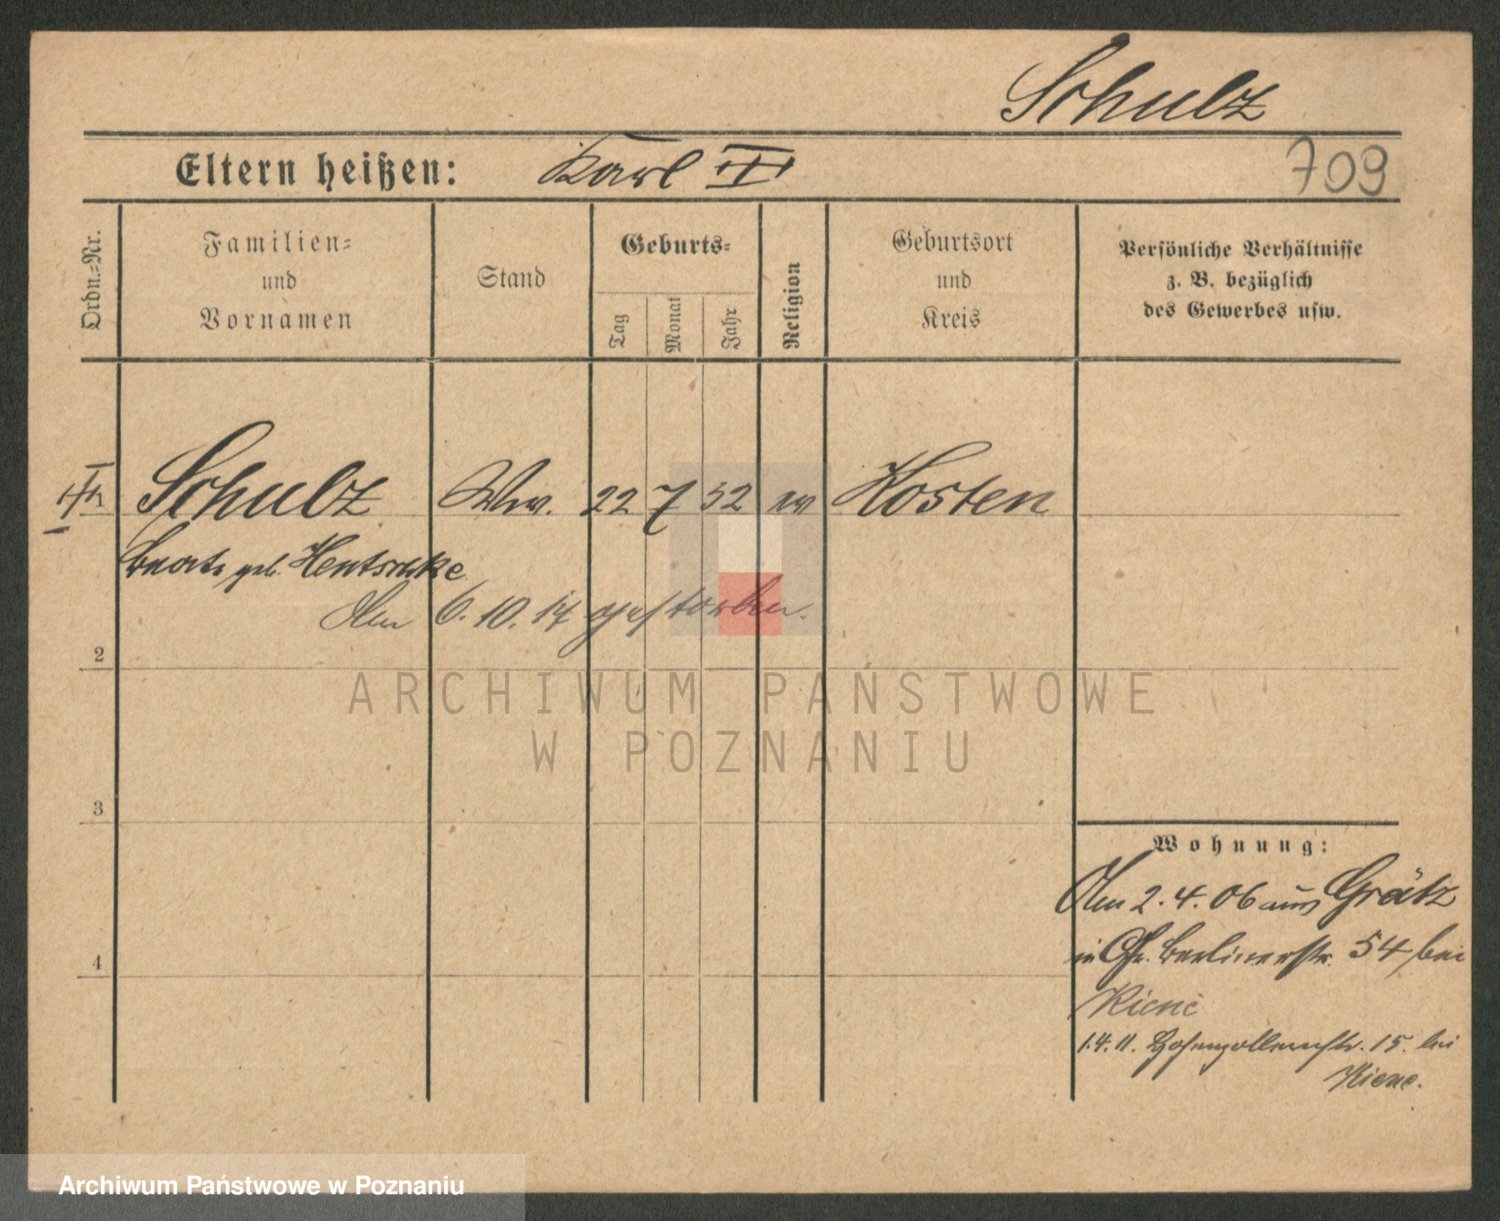 Schulz
Eltern heißen: Karl III
709
Ordn.-Nr.
Familien-
und
Vornamen
Stand
Geburts-
Tag
Monat
Jahr
Religion
Geburtsort
und
Kreis
Persönliche Verhältnisse
z. B. bezüglich
des Gewerbes usw.
Schulz Ww. 22 7 32 ev Kosten
Beate geb. Hentschke
Am 6. 10. 14 gestorben.
2
ARCHIWUM PAŃSTWOWE
W POZNANIU
3
Wohnung:
Am 2. 4. 06 aus Grätz
in Berlinerstr. 54 bei
4
Kiene
1. 4. 11. Hohenzollernstr. 15. bei
Kiene.
Archiwum Państwowe w Poznaniu